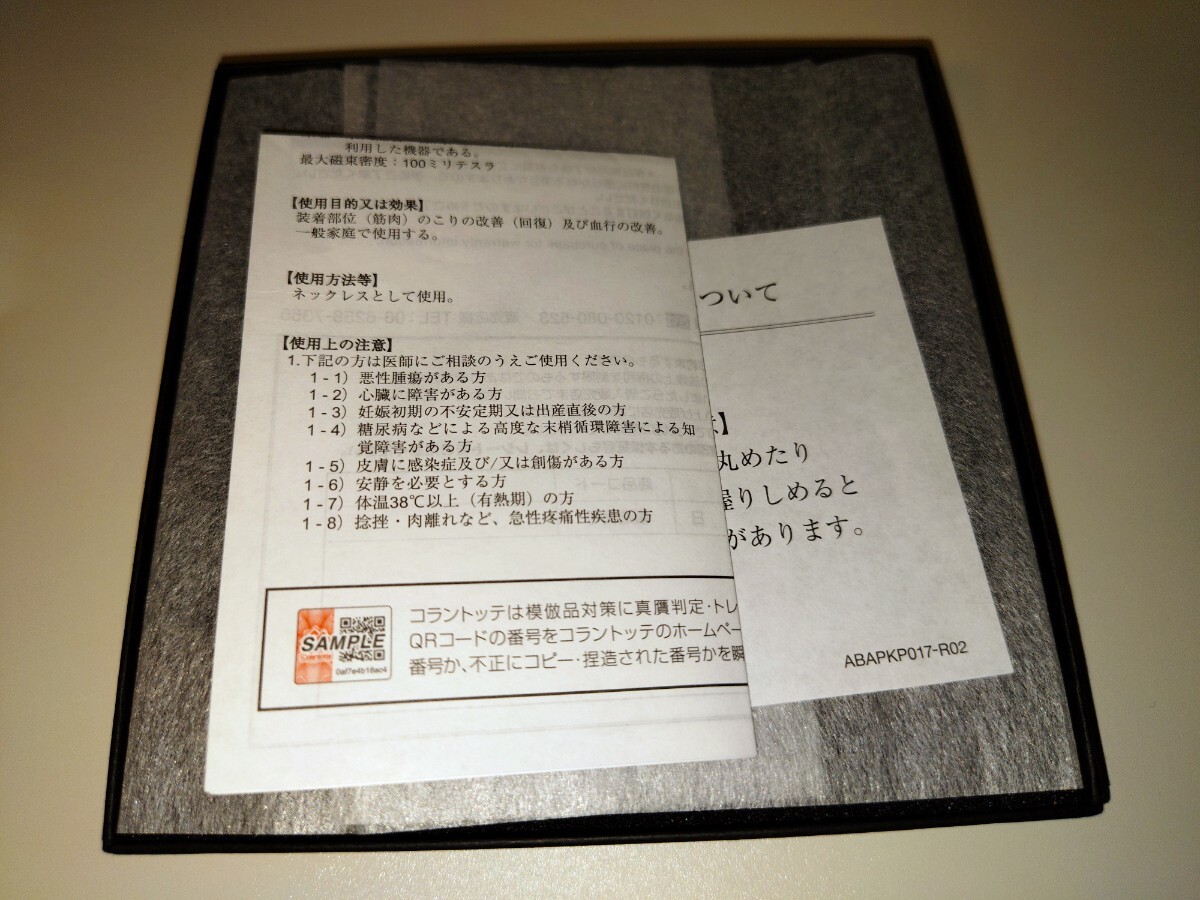 利用した機器である。
最大磁束密度：100ミリテスラ
【使用目的又は効果】
装着部位（筋肉）のこりの改善（回復）及び血行の改善。
一般家庭で使用する。
【使用方法等】
ネックレスとして使用。
【使用上の注意】
1.下記の方は医師にご相談のうえご使用ください。
1-1）悪性腫瘍がある方
1-2）心臓に障害がある方
1-3）妊娠初期の不安定期又は出産直後の方
1-4）糖尿病などによる高度な末梢循環障害による知
覚障害がある方
1-5）皮膚に感染症及び/又は創傷がある方
1-6）安静を必要とする方
1-7）体温38℃以上（有熱期）の方
1-8）捻挫・肉離れなど、急性疼痛性疾患の方
SAMPLE
0af7e4b18ac4
コラントッテは模倣品対策に真贋判定・トレ
QRコードの番号をコラントッテのホームペー
番号か、不正にコピー・捏造された番号かを瞬
ついて
】
丸めたり
握りしめると
があります。
ABAPKP017-R02